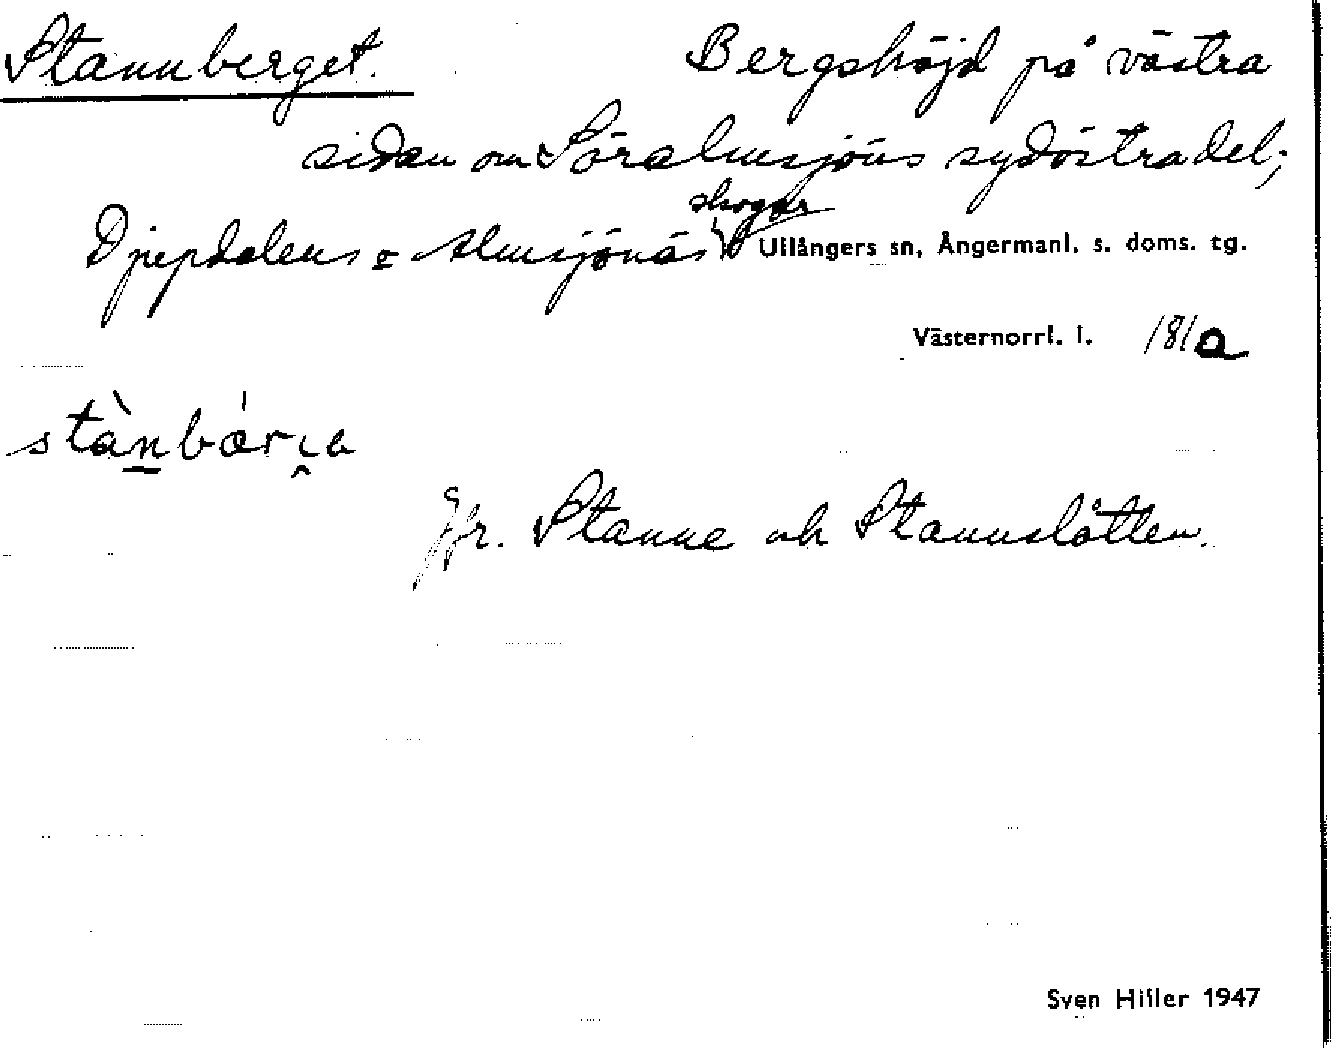 Stannberget. Bergshöjd på västra
sidan om Söralmsjöns sydöstra del;
Djupdalens o Almsjönäs skogar Ullångers sn, Ångermanl. s. doms. tg.
Västernorrl. l. 181a
Jfr. Stanne och Stannslåtten.
Sven Hiller 1947